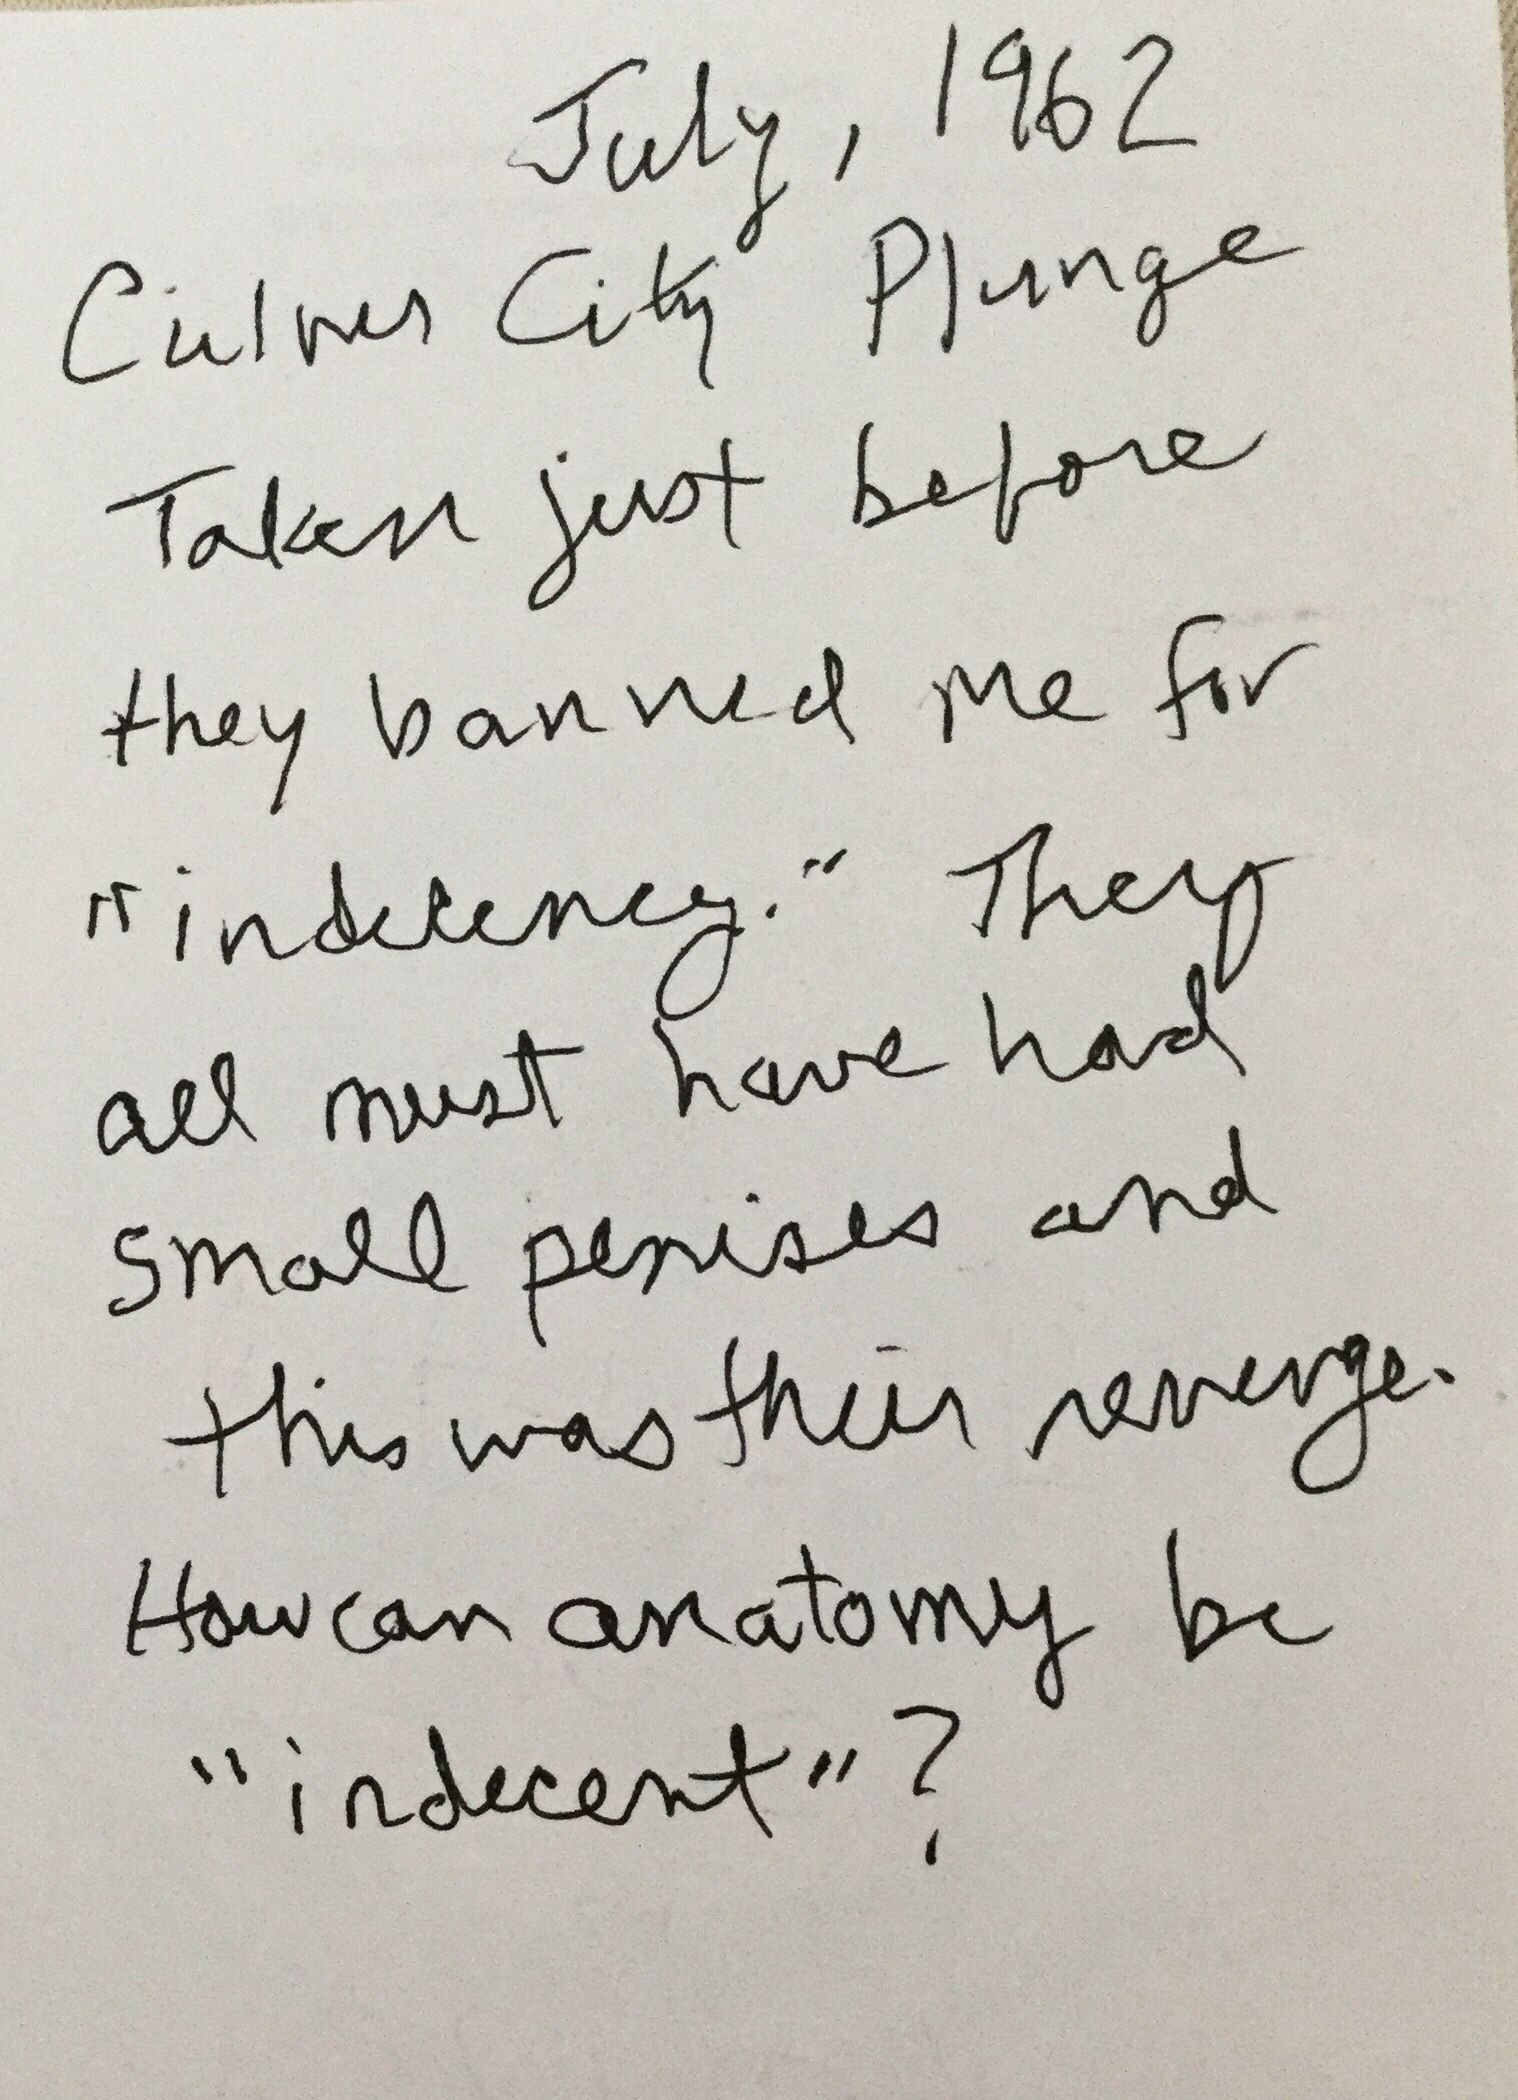 July, 1962
Culver City Plunge
Taken just before
they banned me for
"indecency." They
all must have had
small penises and
this was their revenge.
How can anatomy be
"indecent"?